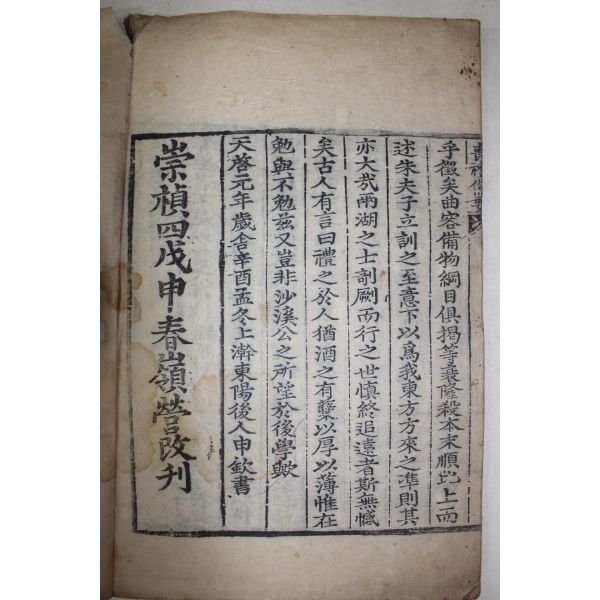 喪禮備要
乎徵矣曲容備物綱目俱揭等衰隆殺本末順比上而
述朱夫子立訓之至意下以爲我東方方來之準則其
亦大哉兩湖之士剞劂而行之世愼終追遠者斯無憾
矣古人有言曰禮之於人猶酒之有蘖以厚以薄惟在
勉與不勉玆又豈非沙溪公之所望於後學歟
天啓元年歲舍辛酉孟冬上澣東陽後人申欽書
崇禎四戊申春嶺營改刊